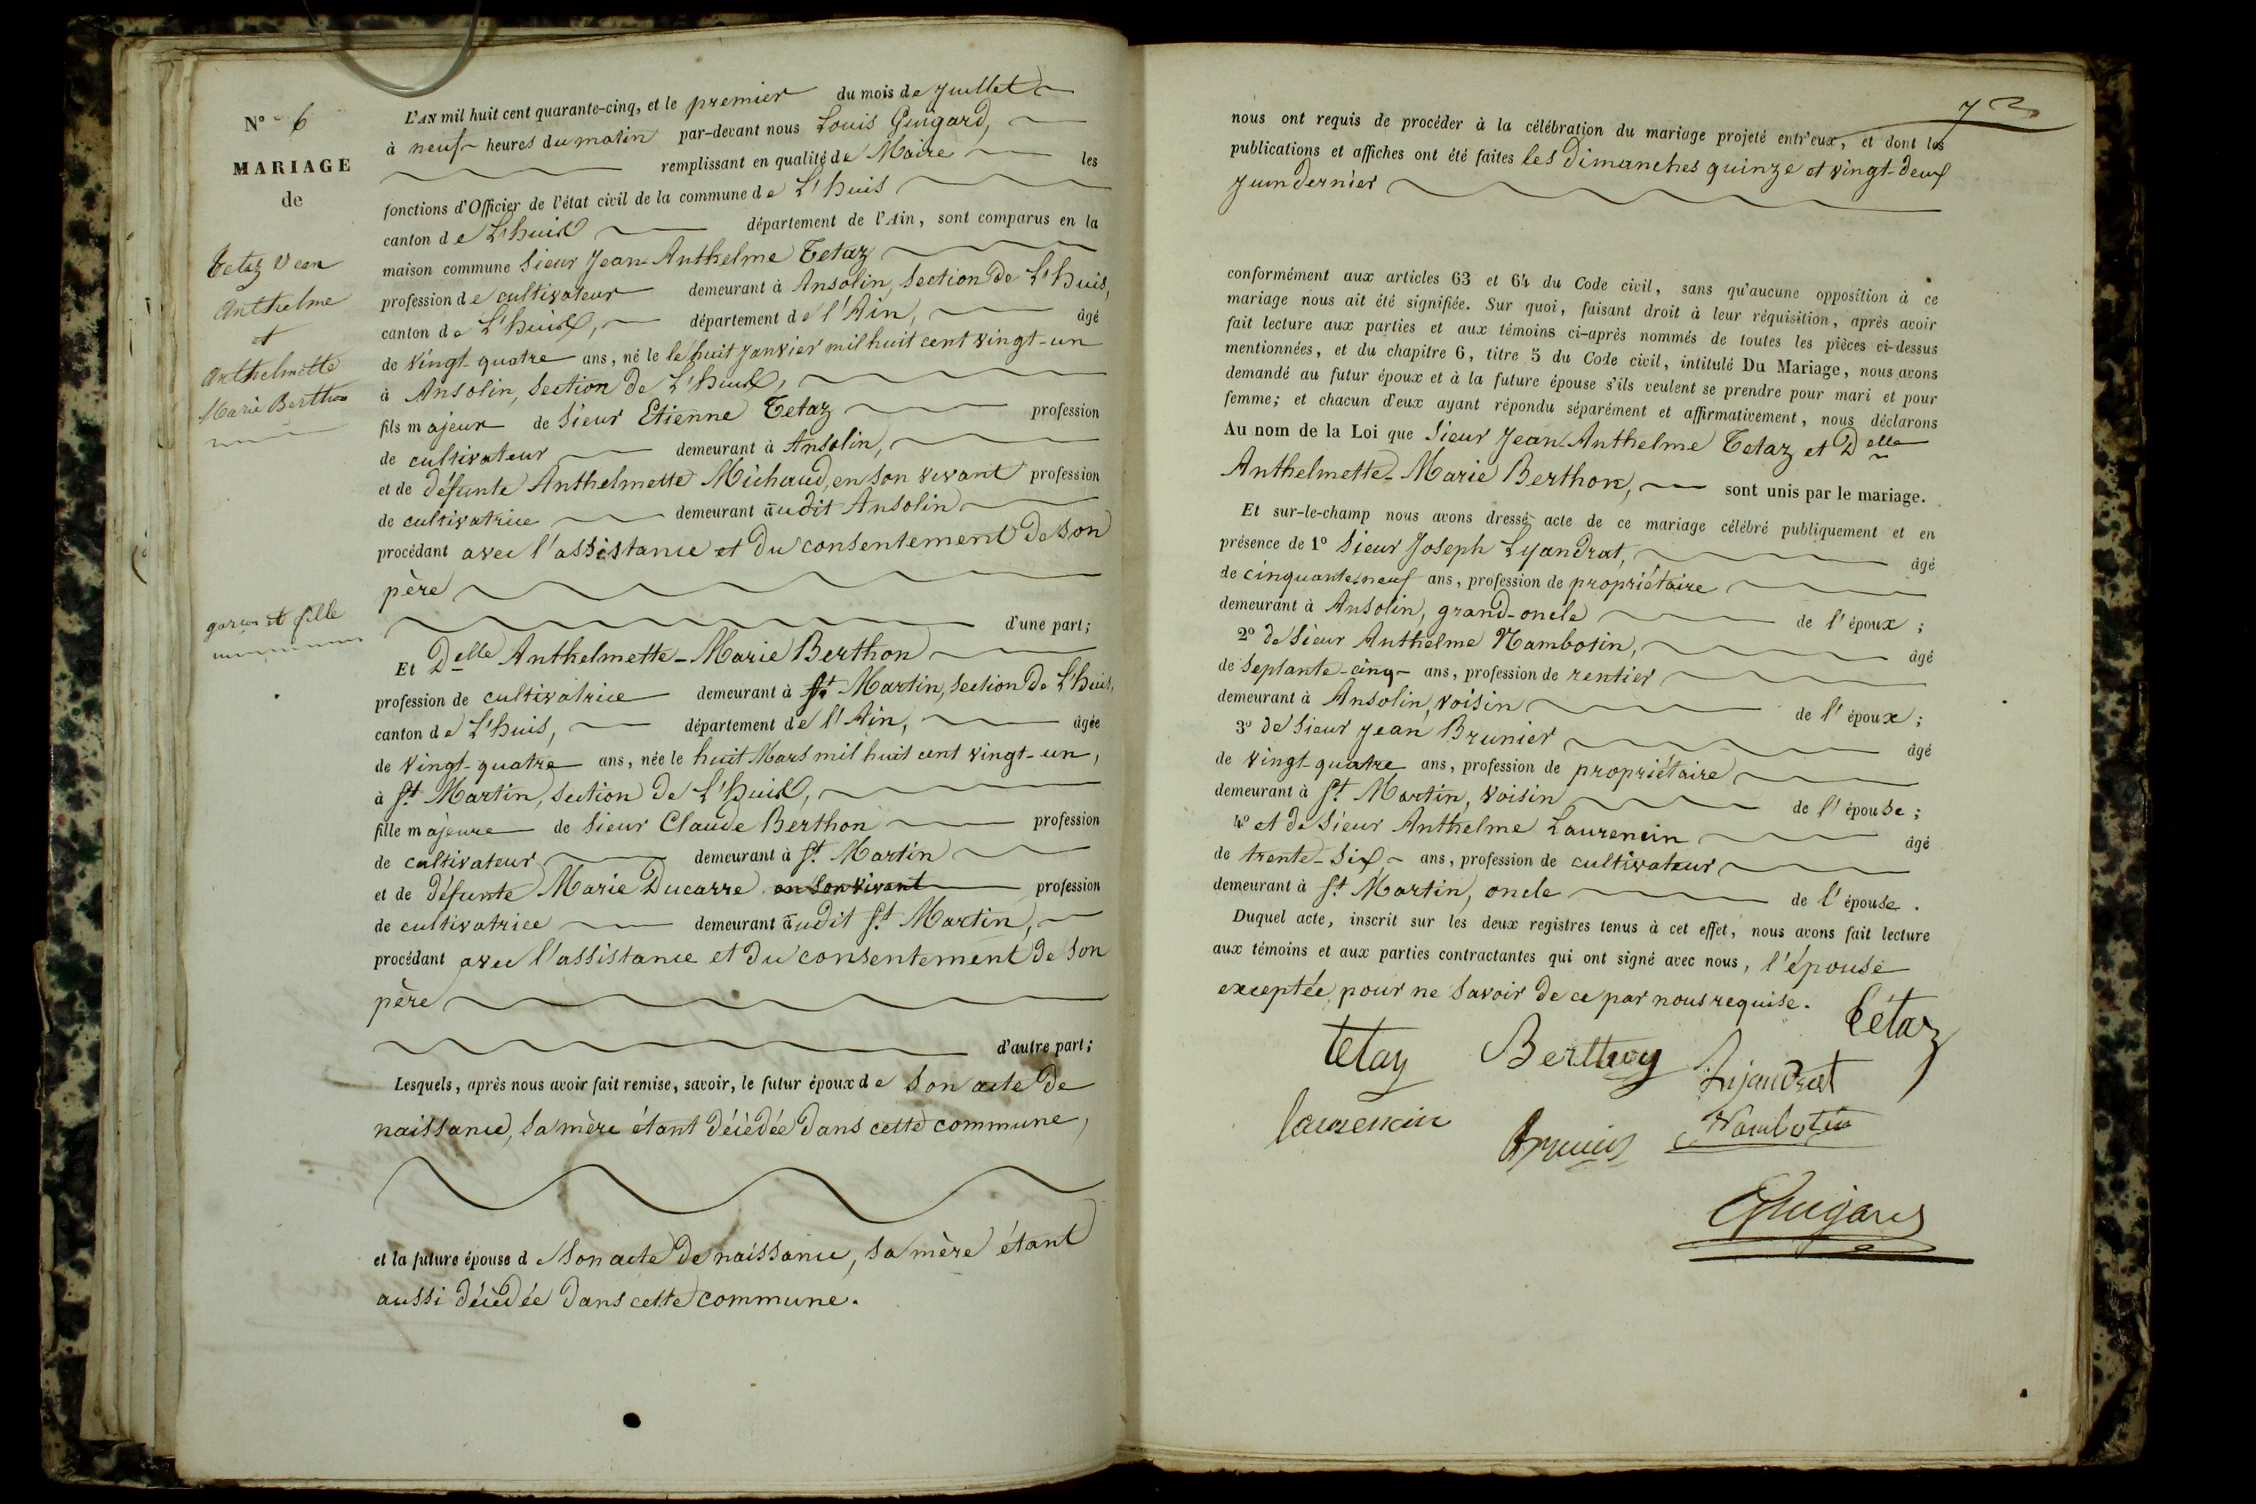 N° 6
MARIAGE
de
Tetaz Jean
Anthelme
et
Anthelmette
Marie Berthon
garçon et fille
L'AN mil huit cent quarante-cinq, et le premier du mois de Juillet
à neuf heures du matin par-devant nous Louis Guigard,
remplissant en qualité de Maire les
fonctions d'Officier de l'état civil de la commune de L'huis
canton de L'huis département de l'Ain, sont comparus en la
maison commune Sieur Jean-Anthelme Tetaz
profession de cultivateur demeurant à Ansolin, Section de L'huis,
canton de L'huis, département de l'Ain, âgé
de vingt-quatre ans, né le le huit Janvier mil huit cent vingt-un
à Ansolin, Section de L'huis,
fils majeur de Sieur Etienne Tetaz profession
de cultivateur demeurant à Ansolin,
et de défunte Anthelmette Michaud, en son vivant profession
de cultivatrice demeurant audit Ansolin
procédant avec l'assistance et du consentement de son
père
d'une part;
Et Delle Anthelmette-Marie Berthon
profession de cultivatrice demeurant à St. Martin, Section de L'huis,
canton de L'huis, département de l'Ain, âgée
de vingt-quatre ans, née le huit Mars mil huit cent vingt-un,
à St. Martin, Section de L'huis,
fille majeure de Sieur Claude Berthon profession
de cultivateur demeurant à St. Martin
et de défunte Marie Ducarre en son vivant profession
de cultivatrice demeurant audit St. Martin,
procédant avec l'assistance et du consentement de son
père
d'autre part;
Lesquels, après nous avoir fait remise, savoir, le futur époux de son acte de
naissance, sa mère étant décédée dans cette commune,
et la future épouse de son acte de naissance, sa mère étant
aussi décédée dans cette commune.
nous ont requis de procéder à la célébration du mariage projeté entr'eux, et dont les
publications et affiches ont été faites les Dimanches quinze et vingt-deux
Juin dernier
conformément aux articles 63 et 64 du Code civil, sans qu'aucune opposition à ce
mariage nous ait été signifiée. Sur quoi, faisant droit à leur réquisition, après avoir
fait lecture aux parties et aux témoins ci-après nommés de toutes les pièces ci-dessus
mentionnées, et du chapitre 6, titre 5 du Code civil, intitulé Du Mariage, nous avons
demandé au futur époux et à la future épouse s'ils veulent se prendre pour mari et pour
femme; et chacun d'eux ayant répondu séparément et affirmativement, nous déclarons
Au nom de la Loi que Sieur Jean-Anthelme Tetaz et Delle
Anthelmette-Marie Berthon, sont unis par le mariage.
Et sur-le-champ nous avons dressé acte de ce mariage célébré publiquement et en
présence de 1° Sieur Joseph Lyandrat, âgé
de cinquante-neuf ans, profession de propriétaire
demeurant à Ansolin, grand-oncle de l'époux;
2° de Sieur Anthelme Nambotin, âgé
de septante-cinq ans, profession de rentier
demeurant à Ansolin, voisin de l'époux;
3° de Sieur Jean Brunier âgé
de vingt-quatre ans, profession de propriétaire
demeurant à St. Martin, voisin de l'épouse;
4° et de Sieur Anthelme Laurencin âgé
de trente-six ans, profession de cultivateur
demeurant à St. Martin, oncle de l'épouse.
Duquel acte, inscrit sur les deux registres tenus à cet effet, nous avons fait lecture
aux témoins et aux parties contractantes qui ont signé avec nous, l'épouse
exceptée pour ne savoir de ce par nous requise.
tetaz Berthon Tétaz
Lyandrat
laurencin Brunier Nambotin
Guigard